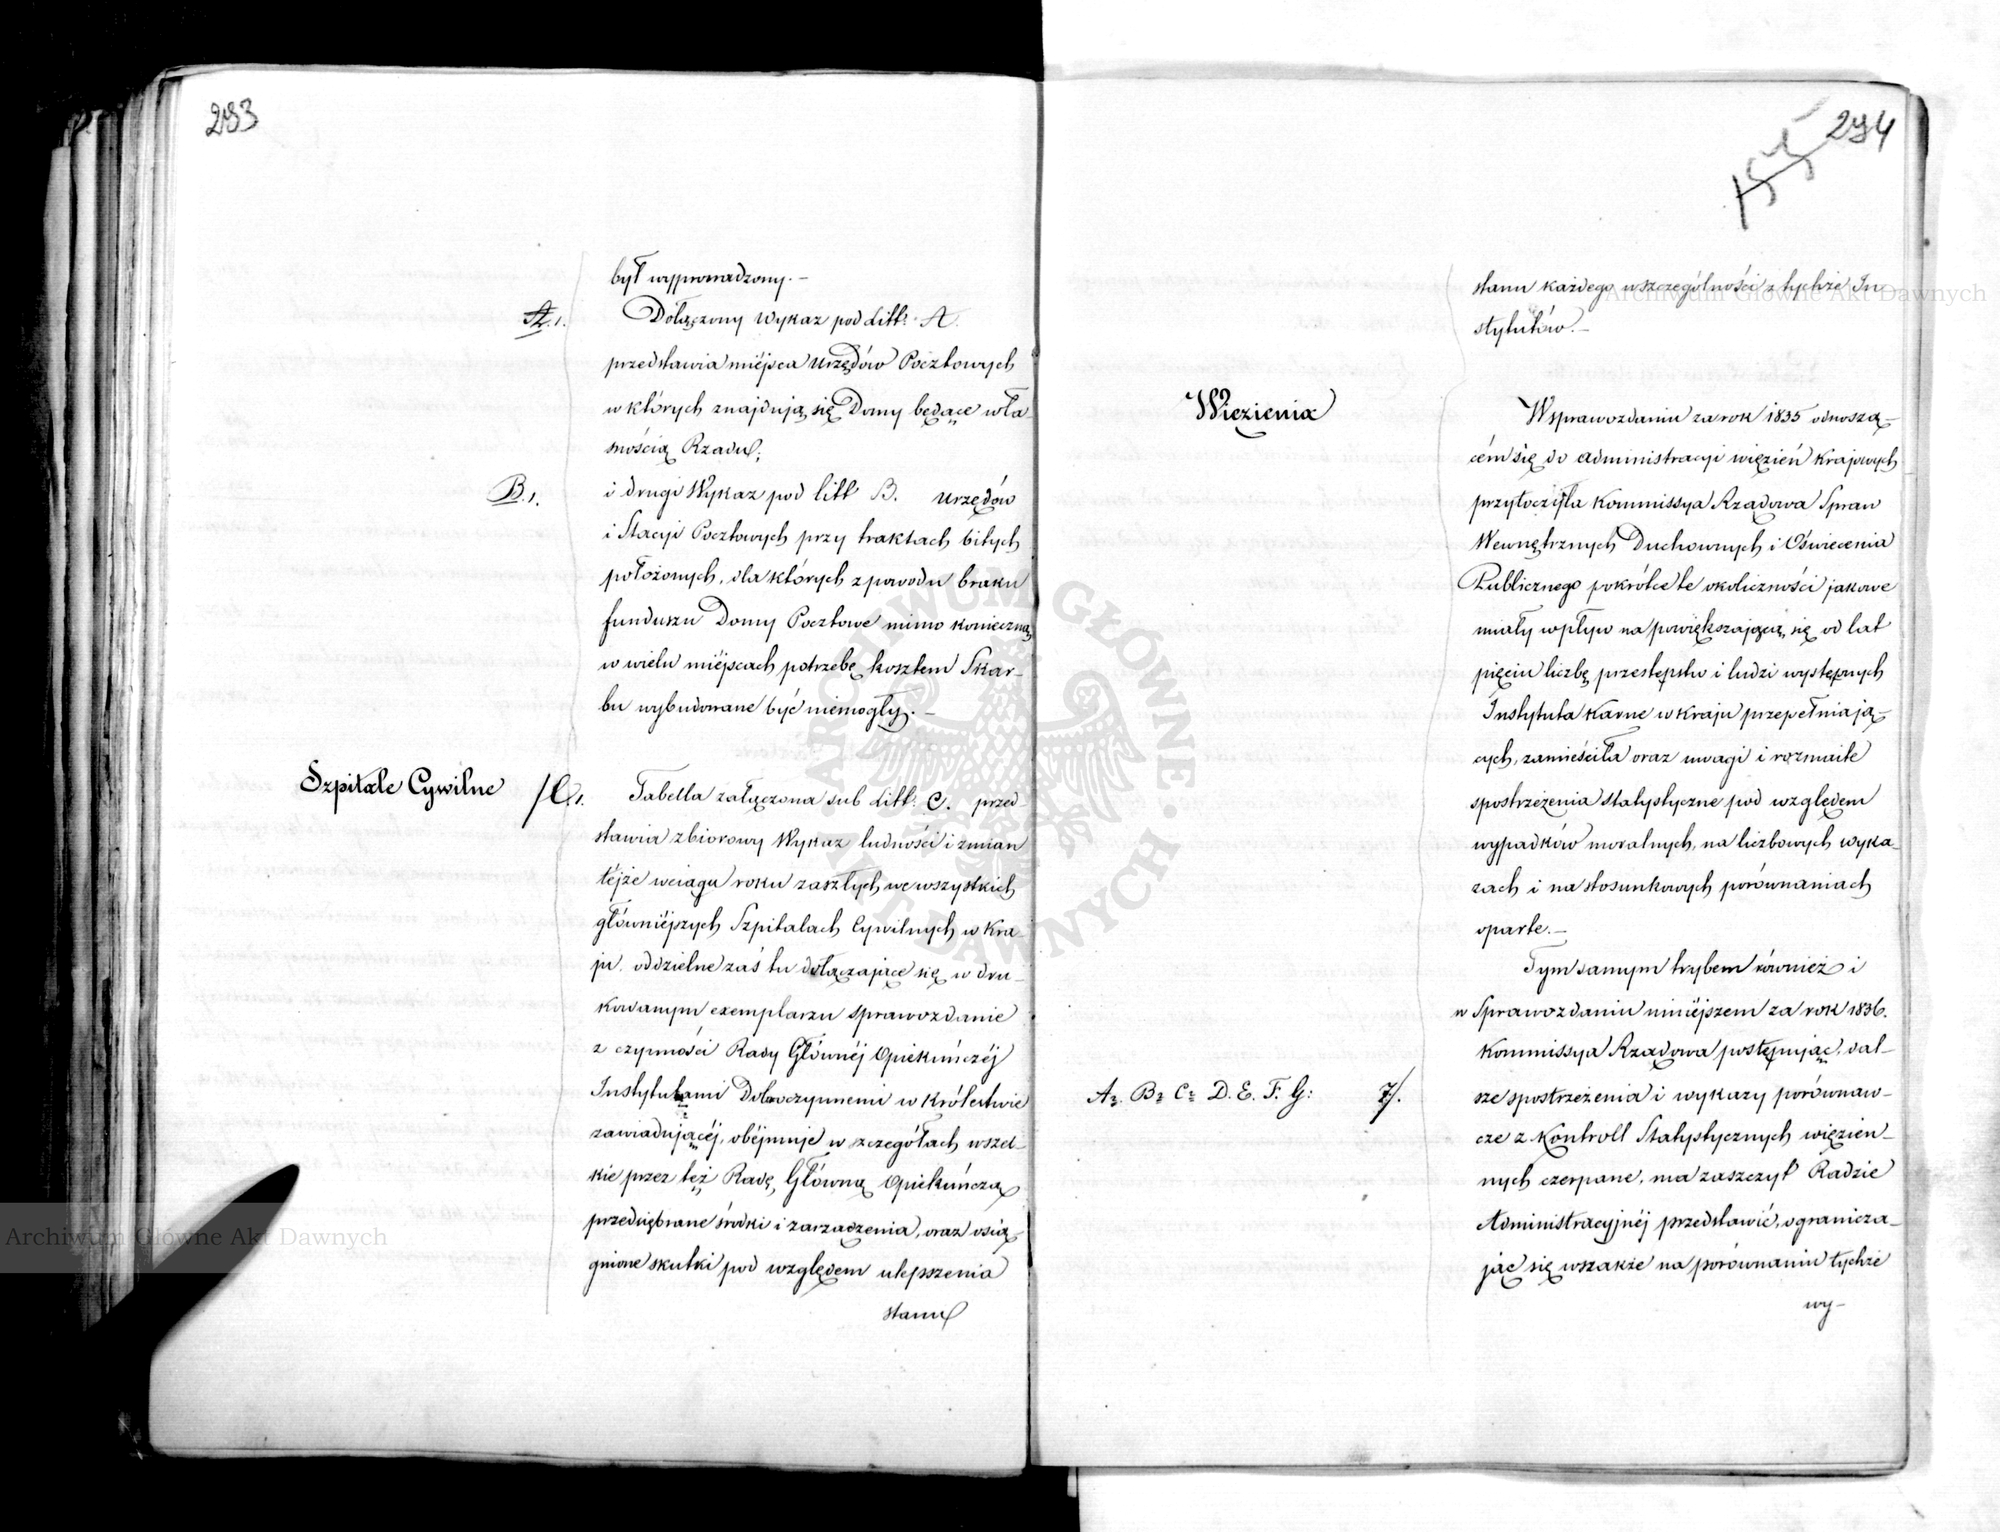 293
był wyprowadzony.—
A.1.
Dołączony Wykaz pod Litt: A.
przedstawia miéjsca Urzędów Pocztowych
w których znajdują się Domy będące wła-
snością Rządu;
B.1.
i drugi Wykaz pod litt B. Urzędów
i Stacyi Pocztowych przy traktach bitych
położonych, dla których z powodu braku
funduszu Domy Pocztowe mimo konieczną
w wielu miéjscach potrzebę kosztem Skar-
bu wybudowane być niemogły.—
Szpitale Cywilne
C.1.
Tabella załączona sub Litt: C. przed-
stawia zbiorowy Wykaz ludności i zmian
téjże wciągu roku zaszłych, we wszystkich
główniéjszych Szpitalach Cywilnych w Kra-
ju, oddzielne zaś tu dołączające się w dru-
kowanym exemplarzu sprawozdanie
z czynności Rady Głównéj Opiekuńczéj
Instytutami Dobroczynnemi w Królestwie
zawiadującéj, obéjmuje w szczegółach wszel-
kie przez też Radę Główną Opiekuńczą
przedsiębrane środki i zarządzenia, oraz osią-
gnione skutki pod względem ulepszenia
stanu
294
155
stanu każdego wszczególności z tychże In-
stytutów.—
Więzienia
W sprawozdaniu za rok 1835 odnoszą-
cém się do administracyi więzień krajowych
przytoczyła Kommissya Rządowa Spraw
Wewnętrznych Duchownych i Oświecenia
Publicznego pokrótce te okoliczności jakowe
miały wpływ na powiększającą się od lat
pięciu liczbę przestępstw i ludzi występnych
Instytuta Karne w Kraju przepełniają-
cych, zamieściła oraz uwagi i rozmaite
spostrzeżenia statystyczne pod względem
wypadków moralnych, na liczbowych wyka-
zach i na stosunkowych porównaniach
oparte.—
Tym samym trybem również i
w Sprawozdaniu niniéjszem za rok 1836.
Kommissya Rządowa postępując, dal-
A2. B2 C2 D. E. F. G: 7/.
sze spostrzeżenia i wykazy porównaw-
cze z Kontroll Statystycznych więzien-
nych czerpane, ma zaszczyt Radzie
Administracyjnéj przedstawić, ogranicza-
jąc się wszakże na porównaniu tychże
wy-
Archiwum Główne Akt Dawnych
Archiwum Główne Akt Dawnych
ARCHIWUM GŁÓWNE AKT DAWNYCH